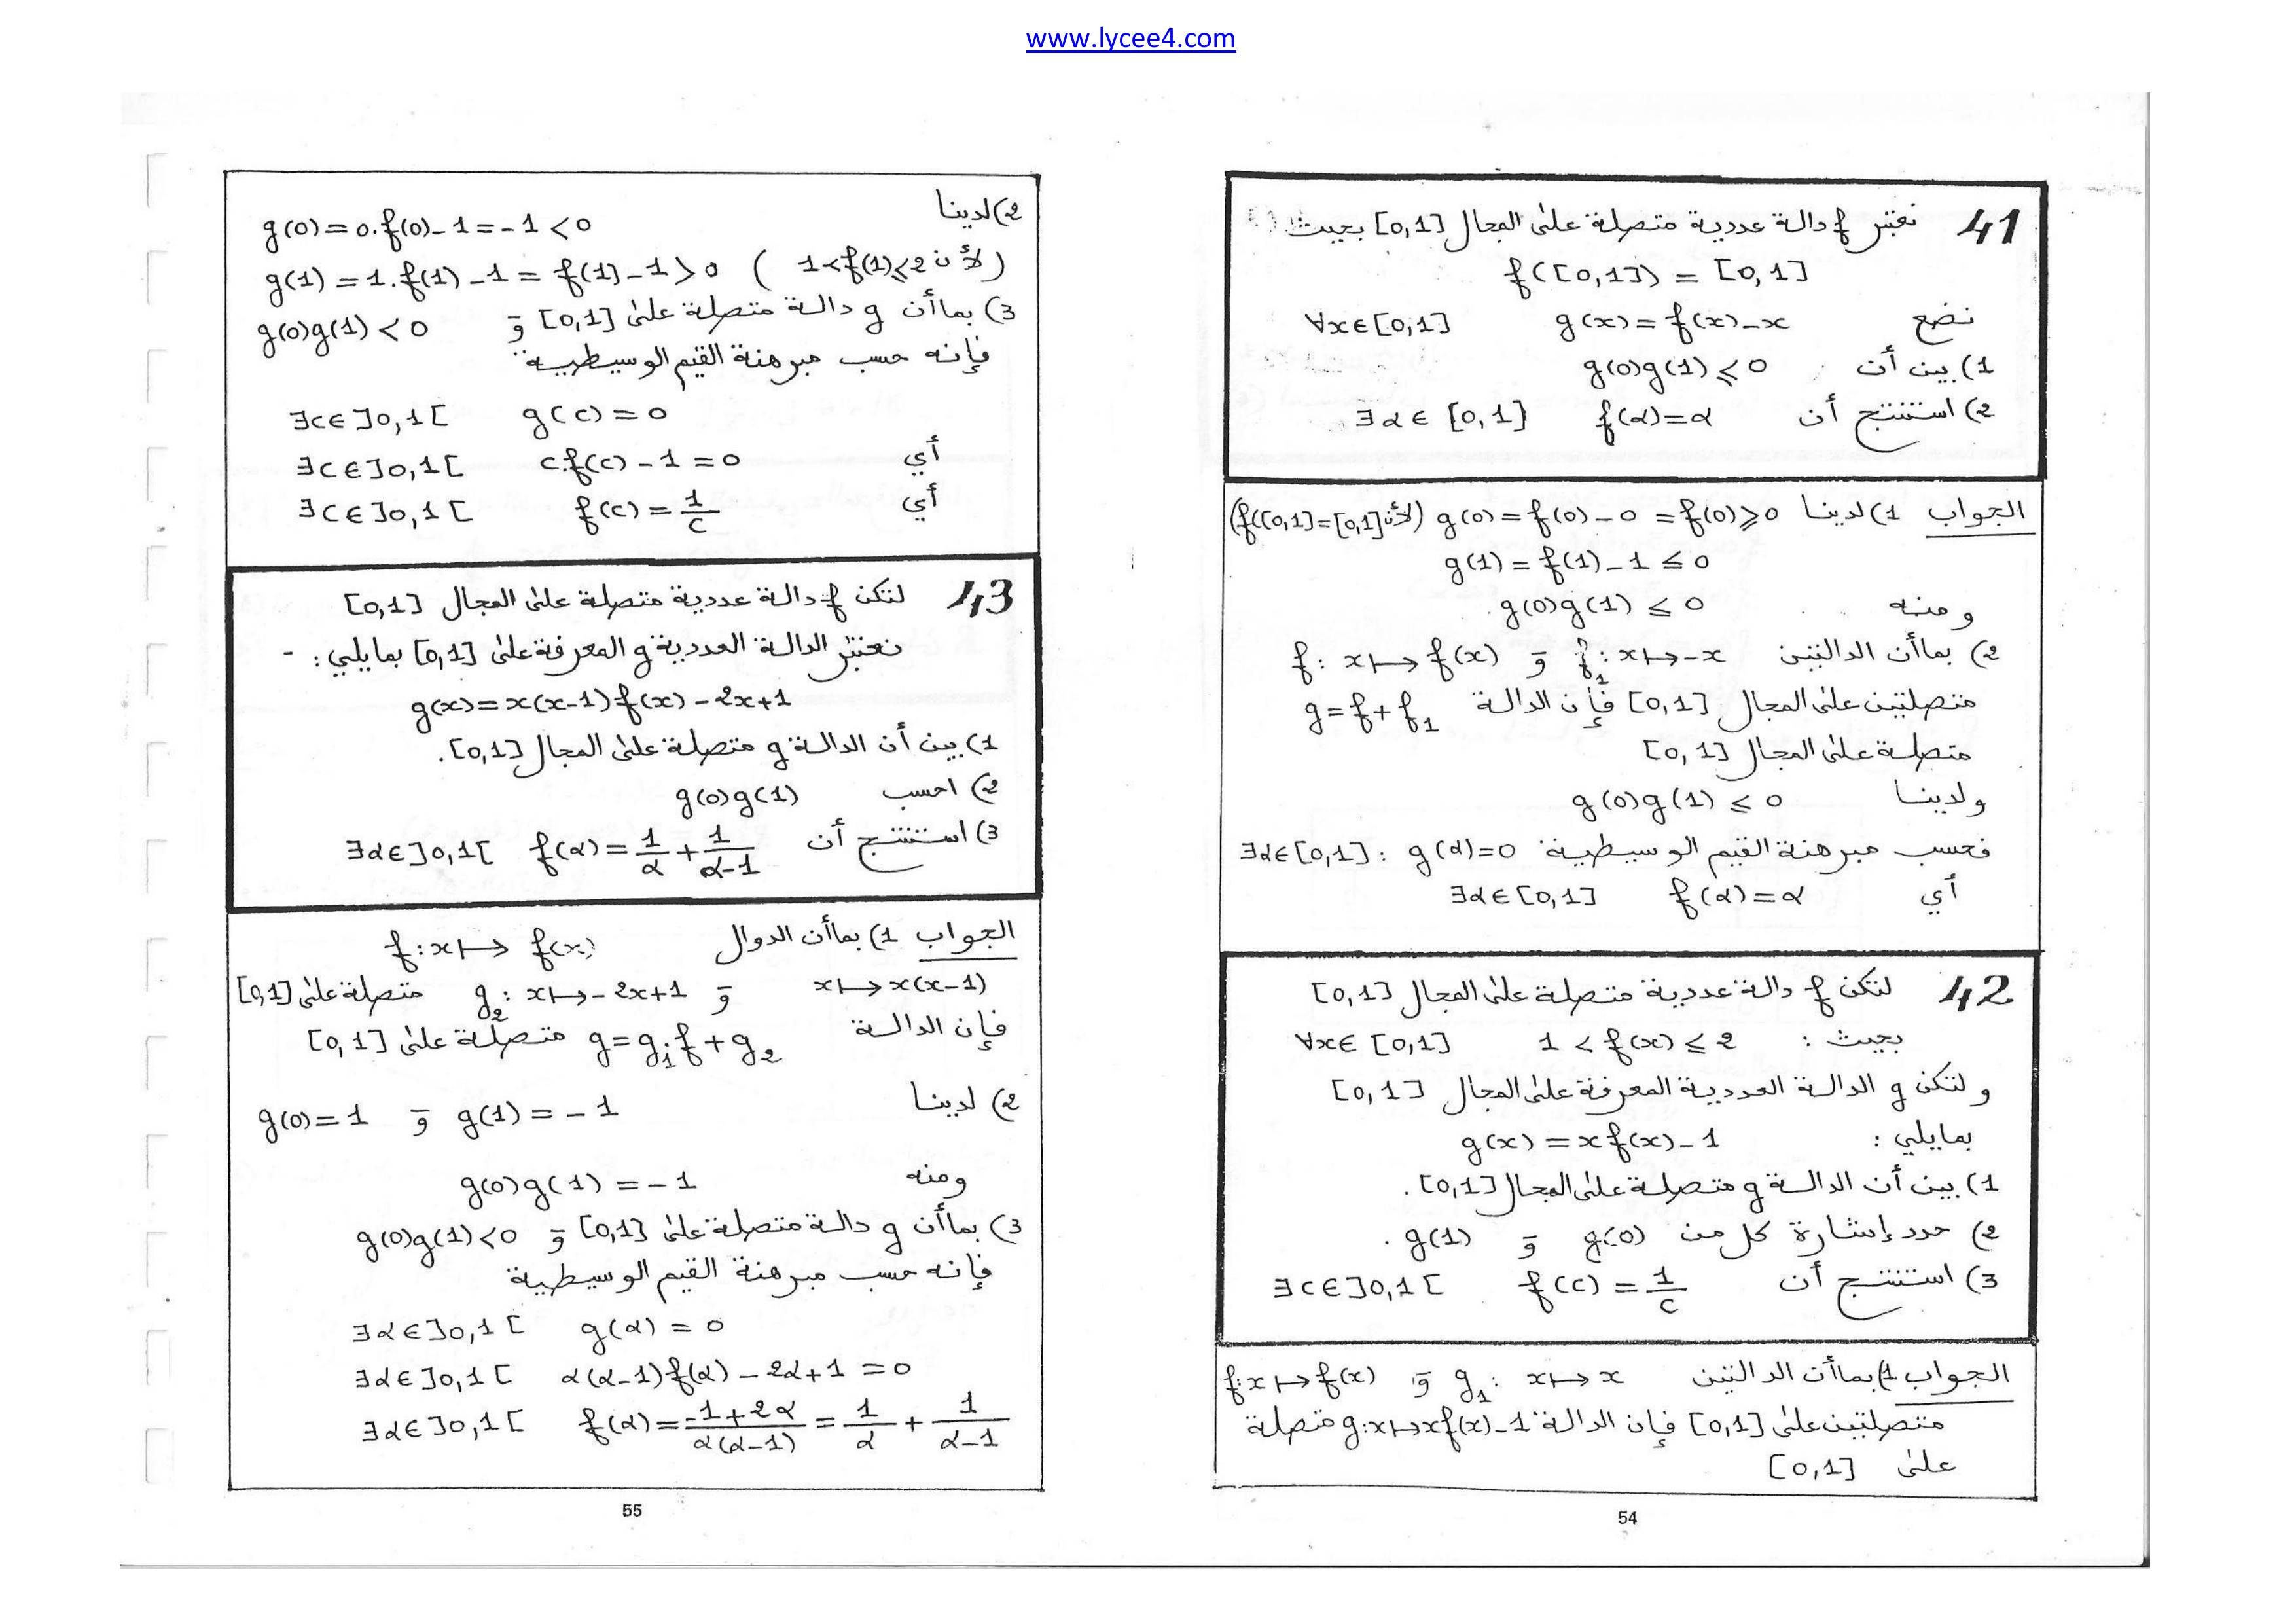 www.lycee4.com
41 نعتبر f دالة عددية متصلة على المجال [0,1] بحيث
f([0,1]) = [0,1]
نضع g(x)=f(x)-x ∀x∈[0,1]
1) بين أن g(0)g(1)⩽0
2) استنتج أن f(α)=α ∃α∈[0,1]
الجواب 1) لدينا g(0)=f(0)-0=f(0)⩾0 (لأن f([0,1]=[0,1])
g(1)=f(1)-1≤0
ومنه g(0)g(1)≤0
2) بما أن الدالتين f₁: x↦-x و f: x↦f(x)
متصلتين على المجال [0,1] فإن الدالة g=f+f₁
متصلة على المجال [0,1]
ولدينا g(0)g(1)≤0
فحسب مبرهنة القيم الوسيطية g(α)=0 : ∃α∈[0,1]
أي f(α)=α ∃α∈[0,1]
42 لتكن f دالة عددية متصلة على المجال [0,1]
بحيث : 1<f(x)≤2 ∀x∈[0,1]
ولتكن g الدالة العددية المعرفة على المجال [0,1]
بمايلي : g(x)=xf(x)-1
1) بين أن الدالة g متصلة على المجال [0,1].
2) حدد إشارة كل من g(0) و g(1) .
3) استنتج أن f(c)=1/c ∃c∈]0,1[
الجواب 1) بما أن الدالتين g₁: x↦x و f:x↦f(x)
متصلتين على [0,1] فإن الدالة g:x↦xf(x)-1 متصلة
على [0,1]
54
2) لدينا
g(0)=0.f(0)-1=-1<0
g(1)=1.f(1)-1=f(1)-1>0 (لأن 1<f(1)≤2)
3) بما أن g دالة متصلة على [0,1] و g(0)g(1)<0
فإنه حسب مبرهنة القيم الوسيطية
∃c∈]0,1[ g(c)=0
أي ∃c∈]0,1[ c.f(c)-1=0
أي ∃c∈]0,1[ f(c)=1/c
43 لتكن f دالة عددية متصلة على المجال [0,1]
نعتبر الدالة العددية g المعرفة على [0,1] بمايلي : -
g(x)=x(x-1)f(x)-2x+1
1) بين أن الدالة g متصلة على المجال [0,1].
2) احسب g(0)g(1)
3) استنتج أن f(α)=1/α+1/(α-1) ∃α∈]0,1[
الجواب 1) بما أن الدوال f:x↦f(x)
x↦x(x-1) و g₂: x↦-2x+1 متصلة على [0,1]
فإن الدالة g=g₁.f+g₂ متصلة على [0,1]
2) لدينا g(1)=-1 و g(0)=1
ومنه g(0)g(1)=-1
3) بما أن g دالة متصلة على [0,1] و g(0)g(1)<0
فإنه حسب مبرهنة القيم الوسيطية
∃α∈]0,1[ g(α)=0
∃α∈]0,1[ α(α-1)f(α)-2α+1=0
∃α∈]0,1[ f(α)=(-1+2α)/(α(α-1))=1/α+1/(α-1)
55